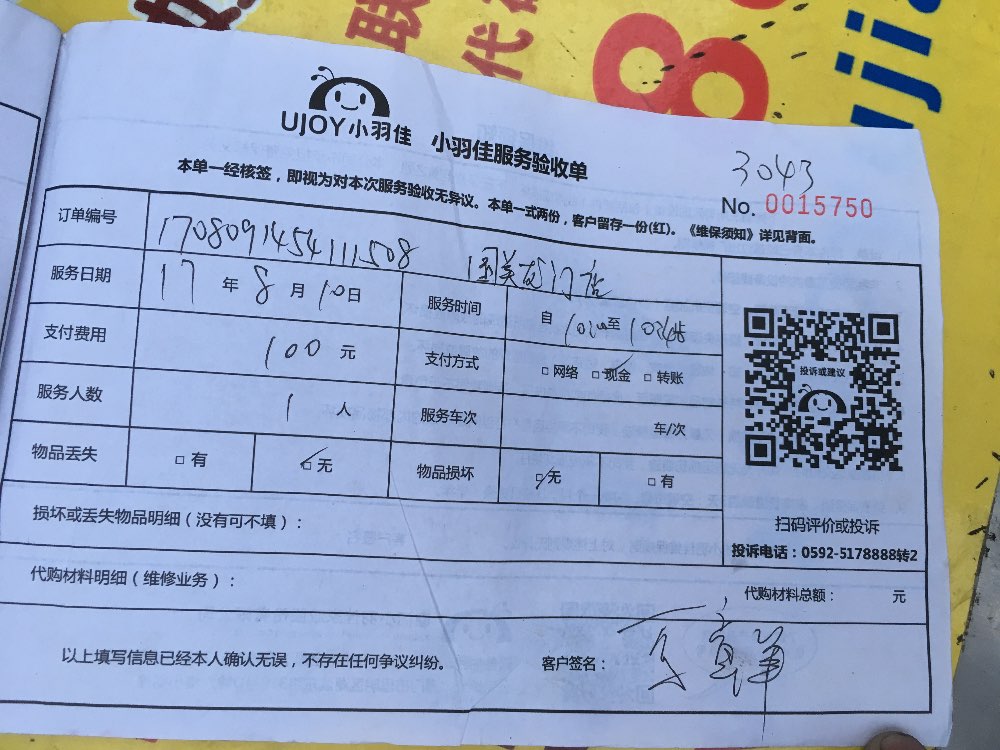 联
代
8
UJOY小羽佳 小羽佳服务验收单
3043
No. 0015750
本单一经核签，即视为对本次服务验收无异议。本单一式两份，客户留存一份(红)。《维保须知》详见背面。
订单编号 170809145411508 国美龙门店
服务日期 17 年 8 月 10 日 服务时间 自 至
支付费用 100 元 支付方式 □ 网络 □ 现金 □ 转账
投诉或建议
服务人数 1 人 服务车次 车/次
物品丢失 □ 有 □ 无 物品损坏 □ 无 □ 有
损坏或丢失物品明细（没有可不填）：
扫码评价或投诉
投诉电话：0592-5178888转2
代购材料明细（维修业务）： 代购材料总额： 元
以上填写信息已经本人确认无误，不存在任何争议纠纷。 客户签名：